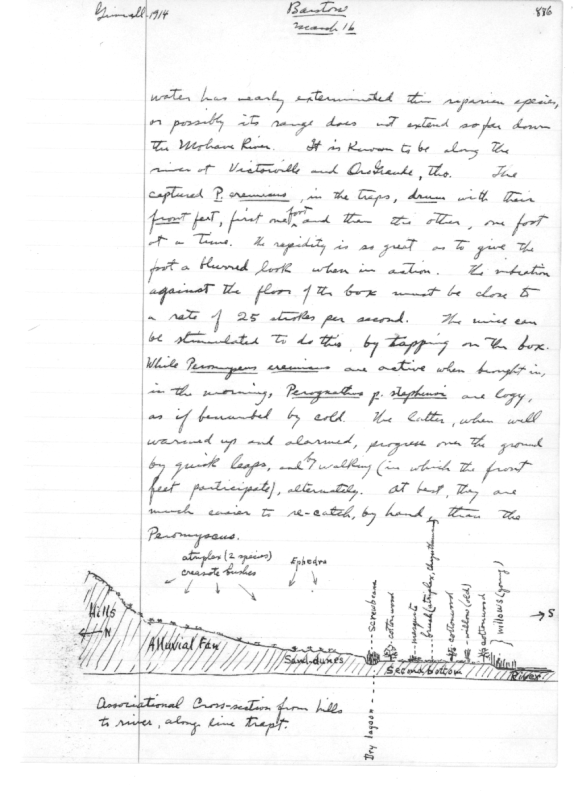 Grinnell - 1914
Barstow
March 16
886
water has nearly exterminated this riparian species,
or possibly its range does not extend so far down
the Mohave River. It is known to be along the
river at Victorville and Oro Grande, tho. The
captured P. eremicus, in the traps, drum with their
front feet, first one foot and then the other, one foot
at a time. The rapidity is so great as to give the
foot a blurred look when in action. The vibration
against the floor of the box must be close to
a rate of 25 strokes per second. The mice can
be stimulated to do this, by tapping on the box.
While Peromyscus eremicus are active when brought in,
in the morning, Perognathus p. stephensi are logy,
as if benumbed by cold. The latter, when well
warmed up and alarmed, progress over the ground
by quick leaps, and by walking (in which the front
feet participate), alternately. At best, they are
much easier to re-catch, by hand, than the
Peromyscus.
atriplex (2 species)
creasote bushes
Ephedra
Hills
N
Alluvial Fan
Sand-dunes
Dry lagoon
Screwbeans
cottonwood
mesquite
brush (atriplex,
cottonwood
willow (old)
cottonwood
willows (young)
S
Second bottom
River
Associational Cross-section from hills
to river, along line trapt.